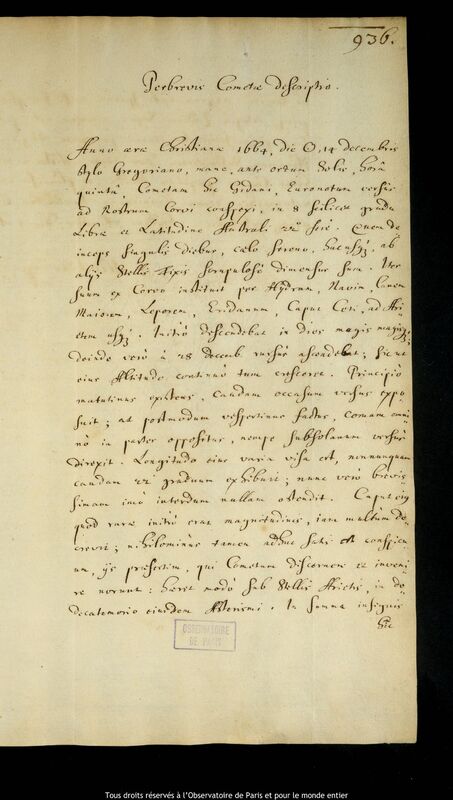 936.
Perbrevis Cometæ descriptio.
Anno æræ Christianæ 1664, die ☉, 14 decembris
stylo Gregoriano, mane, ante ortum Solis, horâ
quintâ, Cometam hic Gedani, Euronotum versus
ad Rostrum Corvi conspexi, in 8 scilicet gradu
Libræ et Latitudine Australi 22° ferè. Quem de
inceps singulis diebus, cælo sereno, hucusq₃, ab
alijs Stellis Fixis scrupulosè dimensus sum. Iter
suum ex Corvo instituit per Hydram, Navim, Canem
Maiorem, Leporem, Eridanum, Caput Ceti, ad Ari
etem usq₃. Initiò descendebat in dies magis magisq₃;
deinde verò à 28 decemb. rursùs ascendebat, sicut
eius Altitudo continuò tum cresceret. Principiò
matutinus existens, Caudam occasum versus expo
suit; at postmodum vespertinus factus, comam omni
nò in partes oppositas, nempe subsolanum versus
direxit. Longitudo eius varia visa est, nonnunquam
caudam 22 graduum exhibuit; nunc verò brevis
simam imò interdum nullam ostendit. Caput eius
quod raræ initiò erat magnitudinis, iam multùm de
crevit; nihilominus tamen adhuc satis est conspicu
um, ijs præsertim, qui Cometam discernere et inveni
re norunt: hæret modò sub Stellis Arietis, in do
decatemorio eiusdem Asterismi. In summa insignis
hic
OBSERVATOIRE
DE PARIS
Tous droits réservés à l'Observatoire de Paris et pour le monde entier